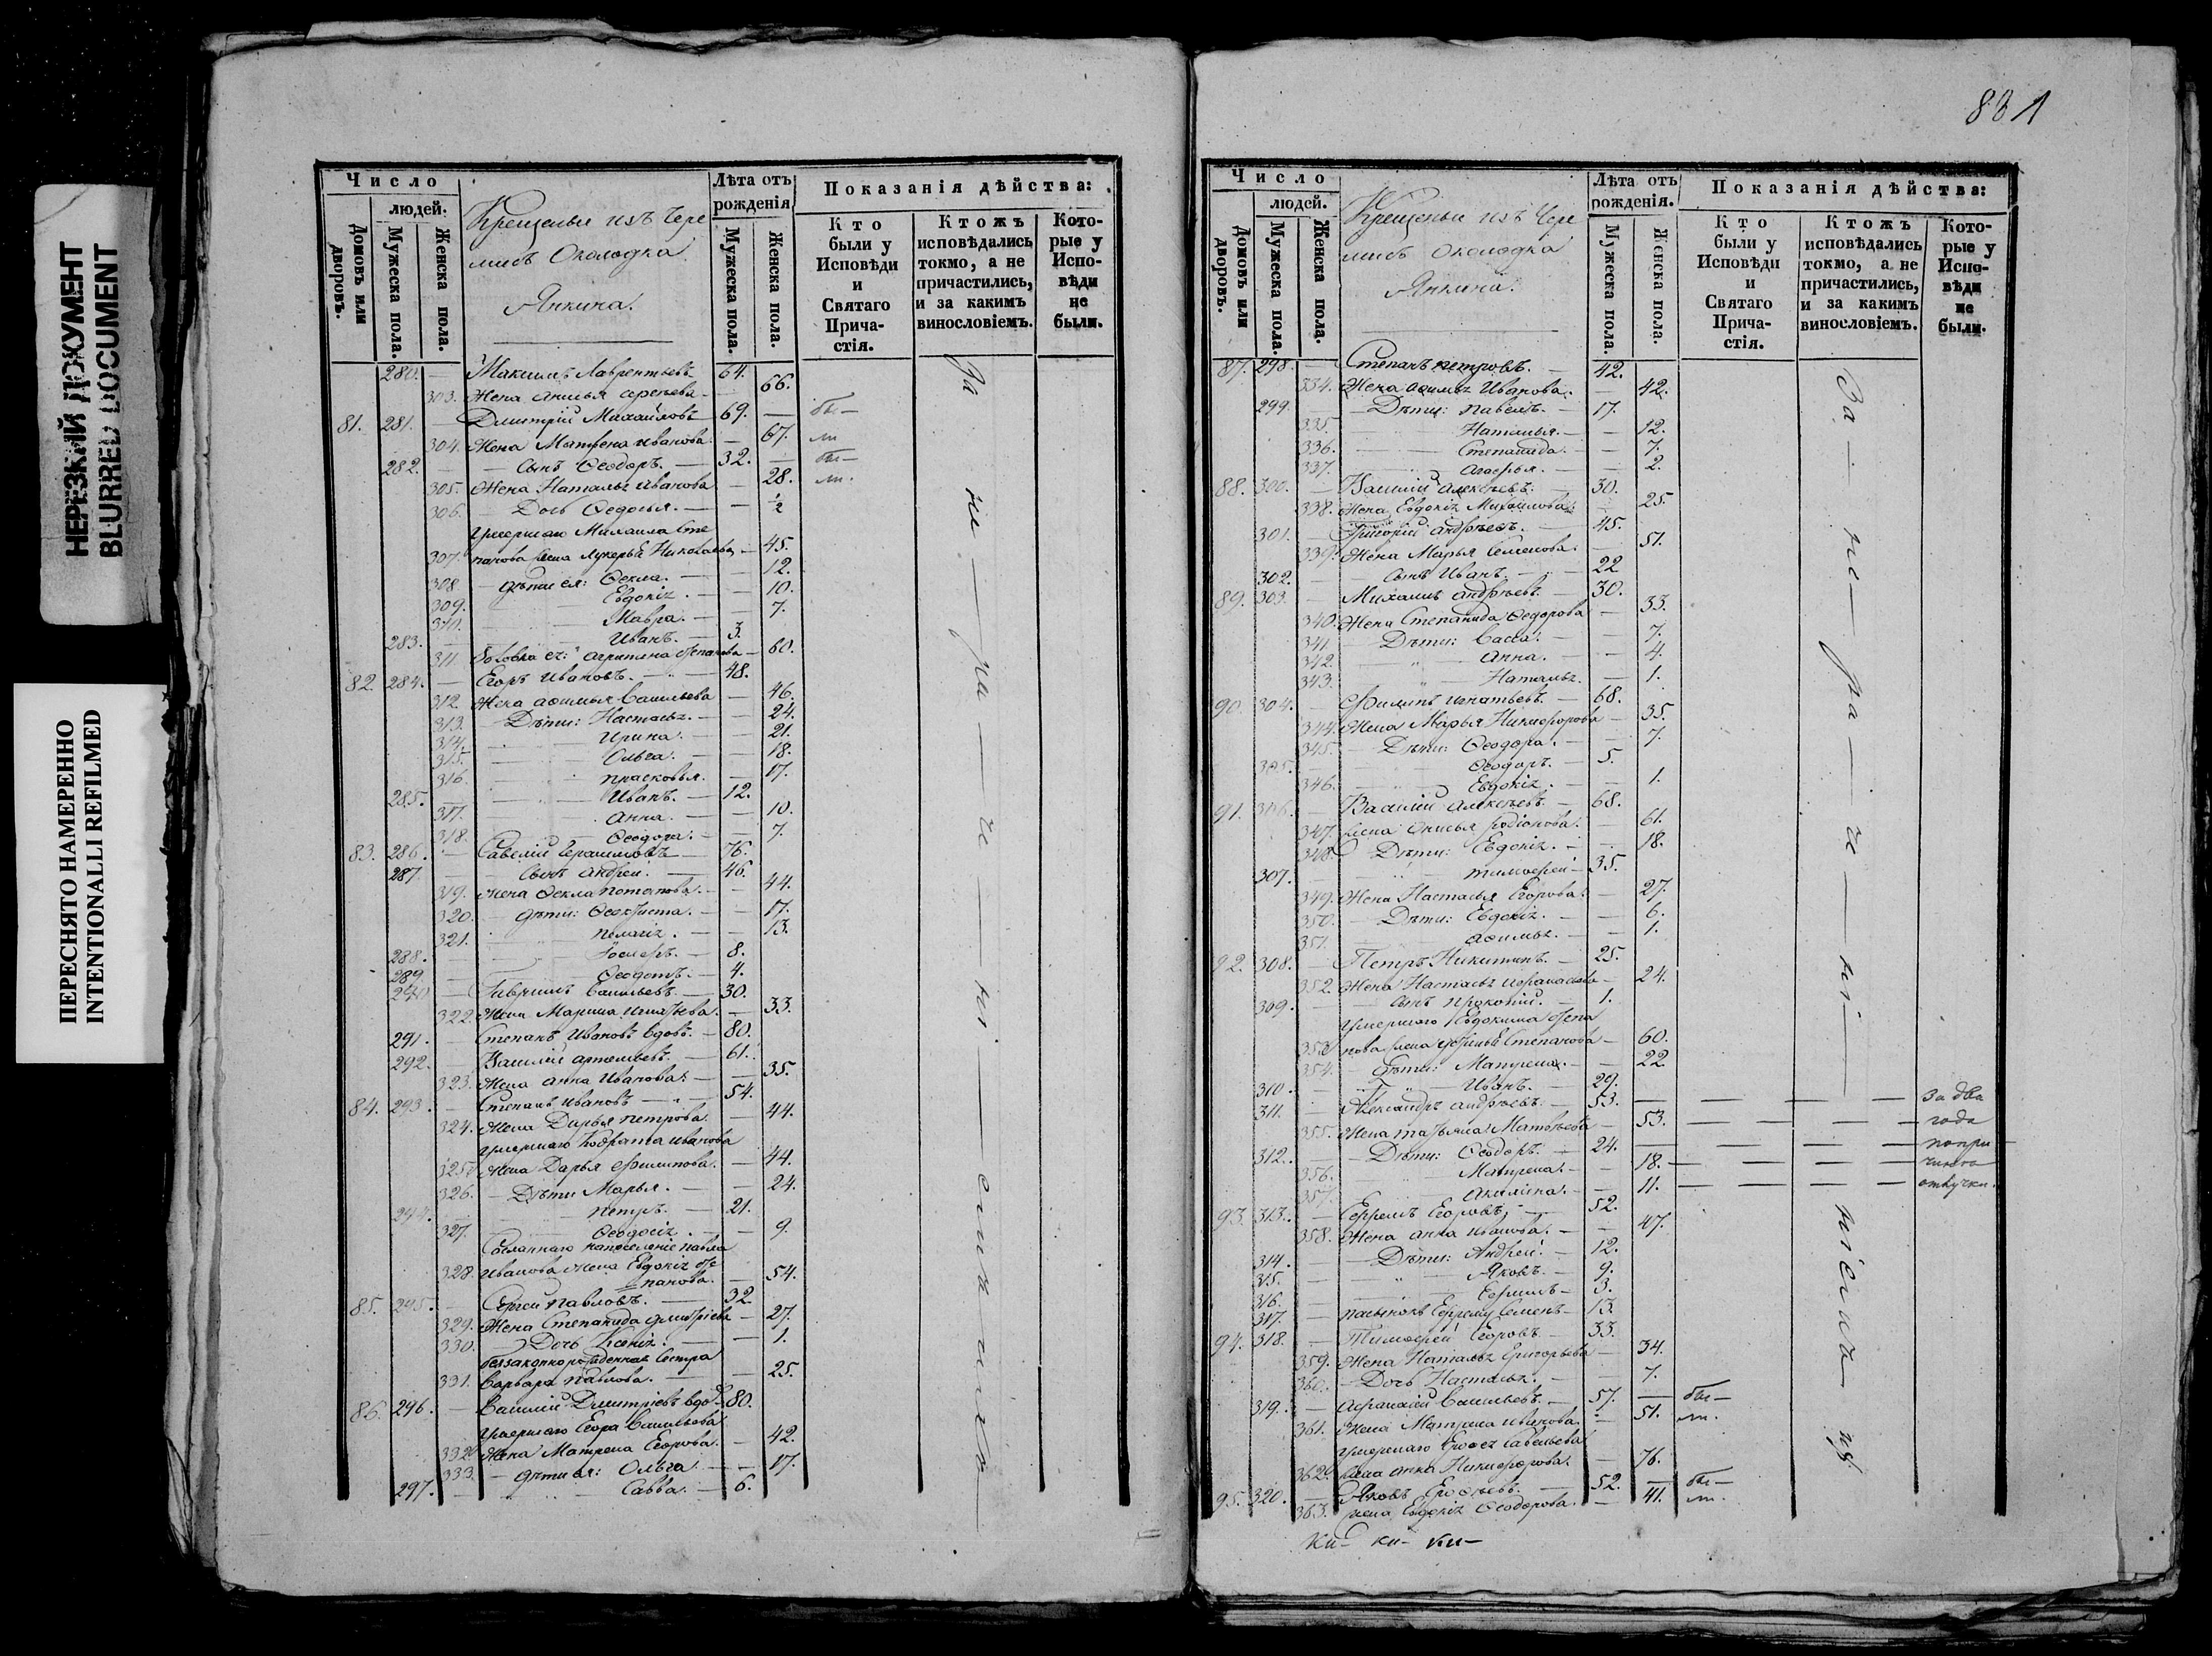 НЕРЕЗКИЙ ДОКУМЕНТ
BLURRED DOCUMENT
ПЕРЕСНЯТО НАМЕРЕННО
INTENTIONALLI REFILMED
Число
людей.
Домовъ или дворовъ.
Мужеска пола.
Женска пола.
Крещеныя изъ Чере
мисъ Околодка
Янкина.
Лѣта отъ рожденія
Мужеска пола.
Женска пола.
Показанія дѣйства:
Кто были у Исповѣди и Святаго Причастія.
Ктожъ исповѣдались токмо, а не причастились, и за какимъ винословіемъ.
Которые у Исповѣди не были.
280. — Максимъ Лаврентьевъ 64.
303. Жена 66.
81. 281. — Дмитрій Михайловъ 69. — бы—
304. Жена Матрена Иванова — 67. ли
282. — Сынъ Ѳеодоръ. — 32. — бы—
305. Жена Наталья Иванова — 28. ли.
306. — Дочь Ѳедосья. — — ½
Умершаго Михаила Сте
307. панова жена Лукерья Николаева — 45.
308 — Дѣти ея: Ѳекла. — — 12.
309. Евдокія. — — 10.
310. Мавра. — — 7.
283. — Иванъ. — 3.
311. Агрипина Степанова — 60.
82. 284. — Егоръ Ивановъ. — 48.
312. Жена Афимья Васильева — 46.
313. — Дѣти: Настасья. — — 24.
314. Ирина. — — 21.
315. Ольга. — — 18.
316. Прасковья. — 17.
285. — Иванъ. — 12.
317. Анна. — — 10.
318. Ѳеодора. — — 7.
83. 286. — Савелій Герасимовъ — 76.
287 — Сынъ Андрей. — 46.
319. Жена Ѳекла Потапова. — 44.
320. — Дѣти: Ѳеоктиста. — — 17.
321. Пелагія. — — 13.
288. — 8.
289 — Ѳеодотъ. — 4.
290 — Гаврилъ Васильевъ. — 30.
322. Жена Марина Игнатьева. — 33.
291. — Степанъ Ивановъ вдовъ. — 80.
292. — Василій Артемьевъ. — 61.
323. Жена Анна Иванова. — — 35.
84. 293. — Степанъ Ивановъ — 54.
324. Жена Дарья Петрова. — 44.
Умершаго Кодрата Иванова
325. Жена Дарья Филипова. — 44.
326. — Дѣти Марья. — — 24.
294. — Петръ. — 21.
327. Ѳеодосія. — — 9.
Сосланнаго на поселеніе Павла
328. Иванова жена Евдокія Сте
панова. — 54.
85. 295. — Сергей Павловъ. — 32
329. Жена Степанида Дмитріева — 27.
330. Дочь Ксенія. — — 1.
беззаконнорожденная сестра
331. Варвара Павлова. — — 25.
86. 296. — Василій Дмитріевъ вдо 80.
Умершаго Егора Васильева
332. Жена Матрена Егорова. — 42.
333. — Дѣти ея: Ольга — — 17.
297. — Савва. — 6.
За — не — ра — че — ні — емъ
831
Число
людей.
Домовъ или дворовъ.
Мужеска пола.
Женска пола.
Крещеныи изъ Чере
мисъ Околодка
Янкина.
Лѣта отъ рожденія.
Мужеска пола.
Женска пола.
Показанія дѣйства:
Кто были у Исповѣди и Святаго Причастія.
Ктожъ исповѣдались токмо, а не причастились, и за какимъ винословіемъ.
Которые у Исповѣди не были.
87. 298. — Степанъ Петровъ. — 42.
334. Жена Афимья Иванова. — 42.
299. — Дѣти: Павелъ. — 17.
335. Наталья. — — 12.
336. Степанида. — — 7.
337. Агафья. — — 2.
88. 300. — Василій Алексѣевъ. 30.
338. Жена Евдокія Михайлова. 25.
301. — Григорій Андрѣевъ. — 45.
339. Жена Марья Семенова. — 51.
302. Сынъ Иванъ. — 22
89. 303. — Михаилъ Андрѣевъ. — 30.
340. Жена Степанида Ѳедорова — 33.
341. — Дѣти: Васса. — — 7.
342. Анна. — — 4.
343. Наталья. — 1.
90. 304. — Филипъ Игнатьевъ. — 68.
344. Жена Марья Никифорова — 35.
345. — Дѣти: Ѳеодора. — — 7.
305. — Ѳеодоръ. — 5.
346. Евдокія. — — 1.
91. 306. — Василій Алексѣевъ. — 68.
347. Жена Анисья Родіонова. — 61.
348. Дѣти: Евдокія. — — 18.
307. — Тимоѳей — 35.
349. Жена Настасья Егорова. — 27.
350. — Дѣти: Евдокія. — — 6.
351. Афимья. — — 1.
92. 308. — Петръ Никитинъ. — 25.
352. Жена Настасья Афанасьева — 24.
309. — Сынъ Прокопій. — 1.
Умершаго Евдокима Степа
353 нова жена Степанова — 60.
354. Дѣти: Матрена. — — 22
310. — Иванъ. — 29.
311. — Александръ Андрѣевъ. — 53. — — — — — За два
355. Жена Татьяна Матвѣева — 53. — — — — года
312. — Дѣти: Ѳеодоръ. — 24. — — — — — попри—
356. Матрена. — — 18. — — — — чинѣ
357. Акилина. — — 11. — — — — отлучки.
93. 313. — Ефремъ Егоровъ. — 52.
358. Жена Анна Иванова. — — 47.
314. — Дѣти: Андрей. — 12.
315. — Яковъ. — 9.
316. — Ефимъ — 3.
317. — пасынокъ Ефрему Семенъ — 13.
94. 318. — Тимоѳей Егоровъ. — 33.
359. Жена Наталья Григорьева — 34.
360. — Дочь Настасья. — — 7.
319. — Афанасій Васильевъ. — 57. — бы—
361. Жена Матрена Иванова. — 51. ли.
Умершаго Савельева
362. жена Анна Никифорова. — 76.
95. 320. — Яковъ 52. — бы—
363. жена Евдокія Ѳеодорова. — 41. ли.
За — не — ра — че — ні —
ніемъ